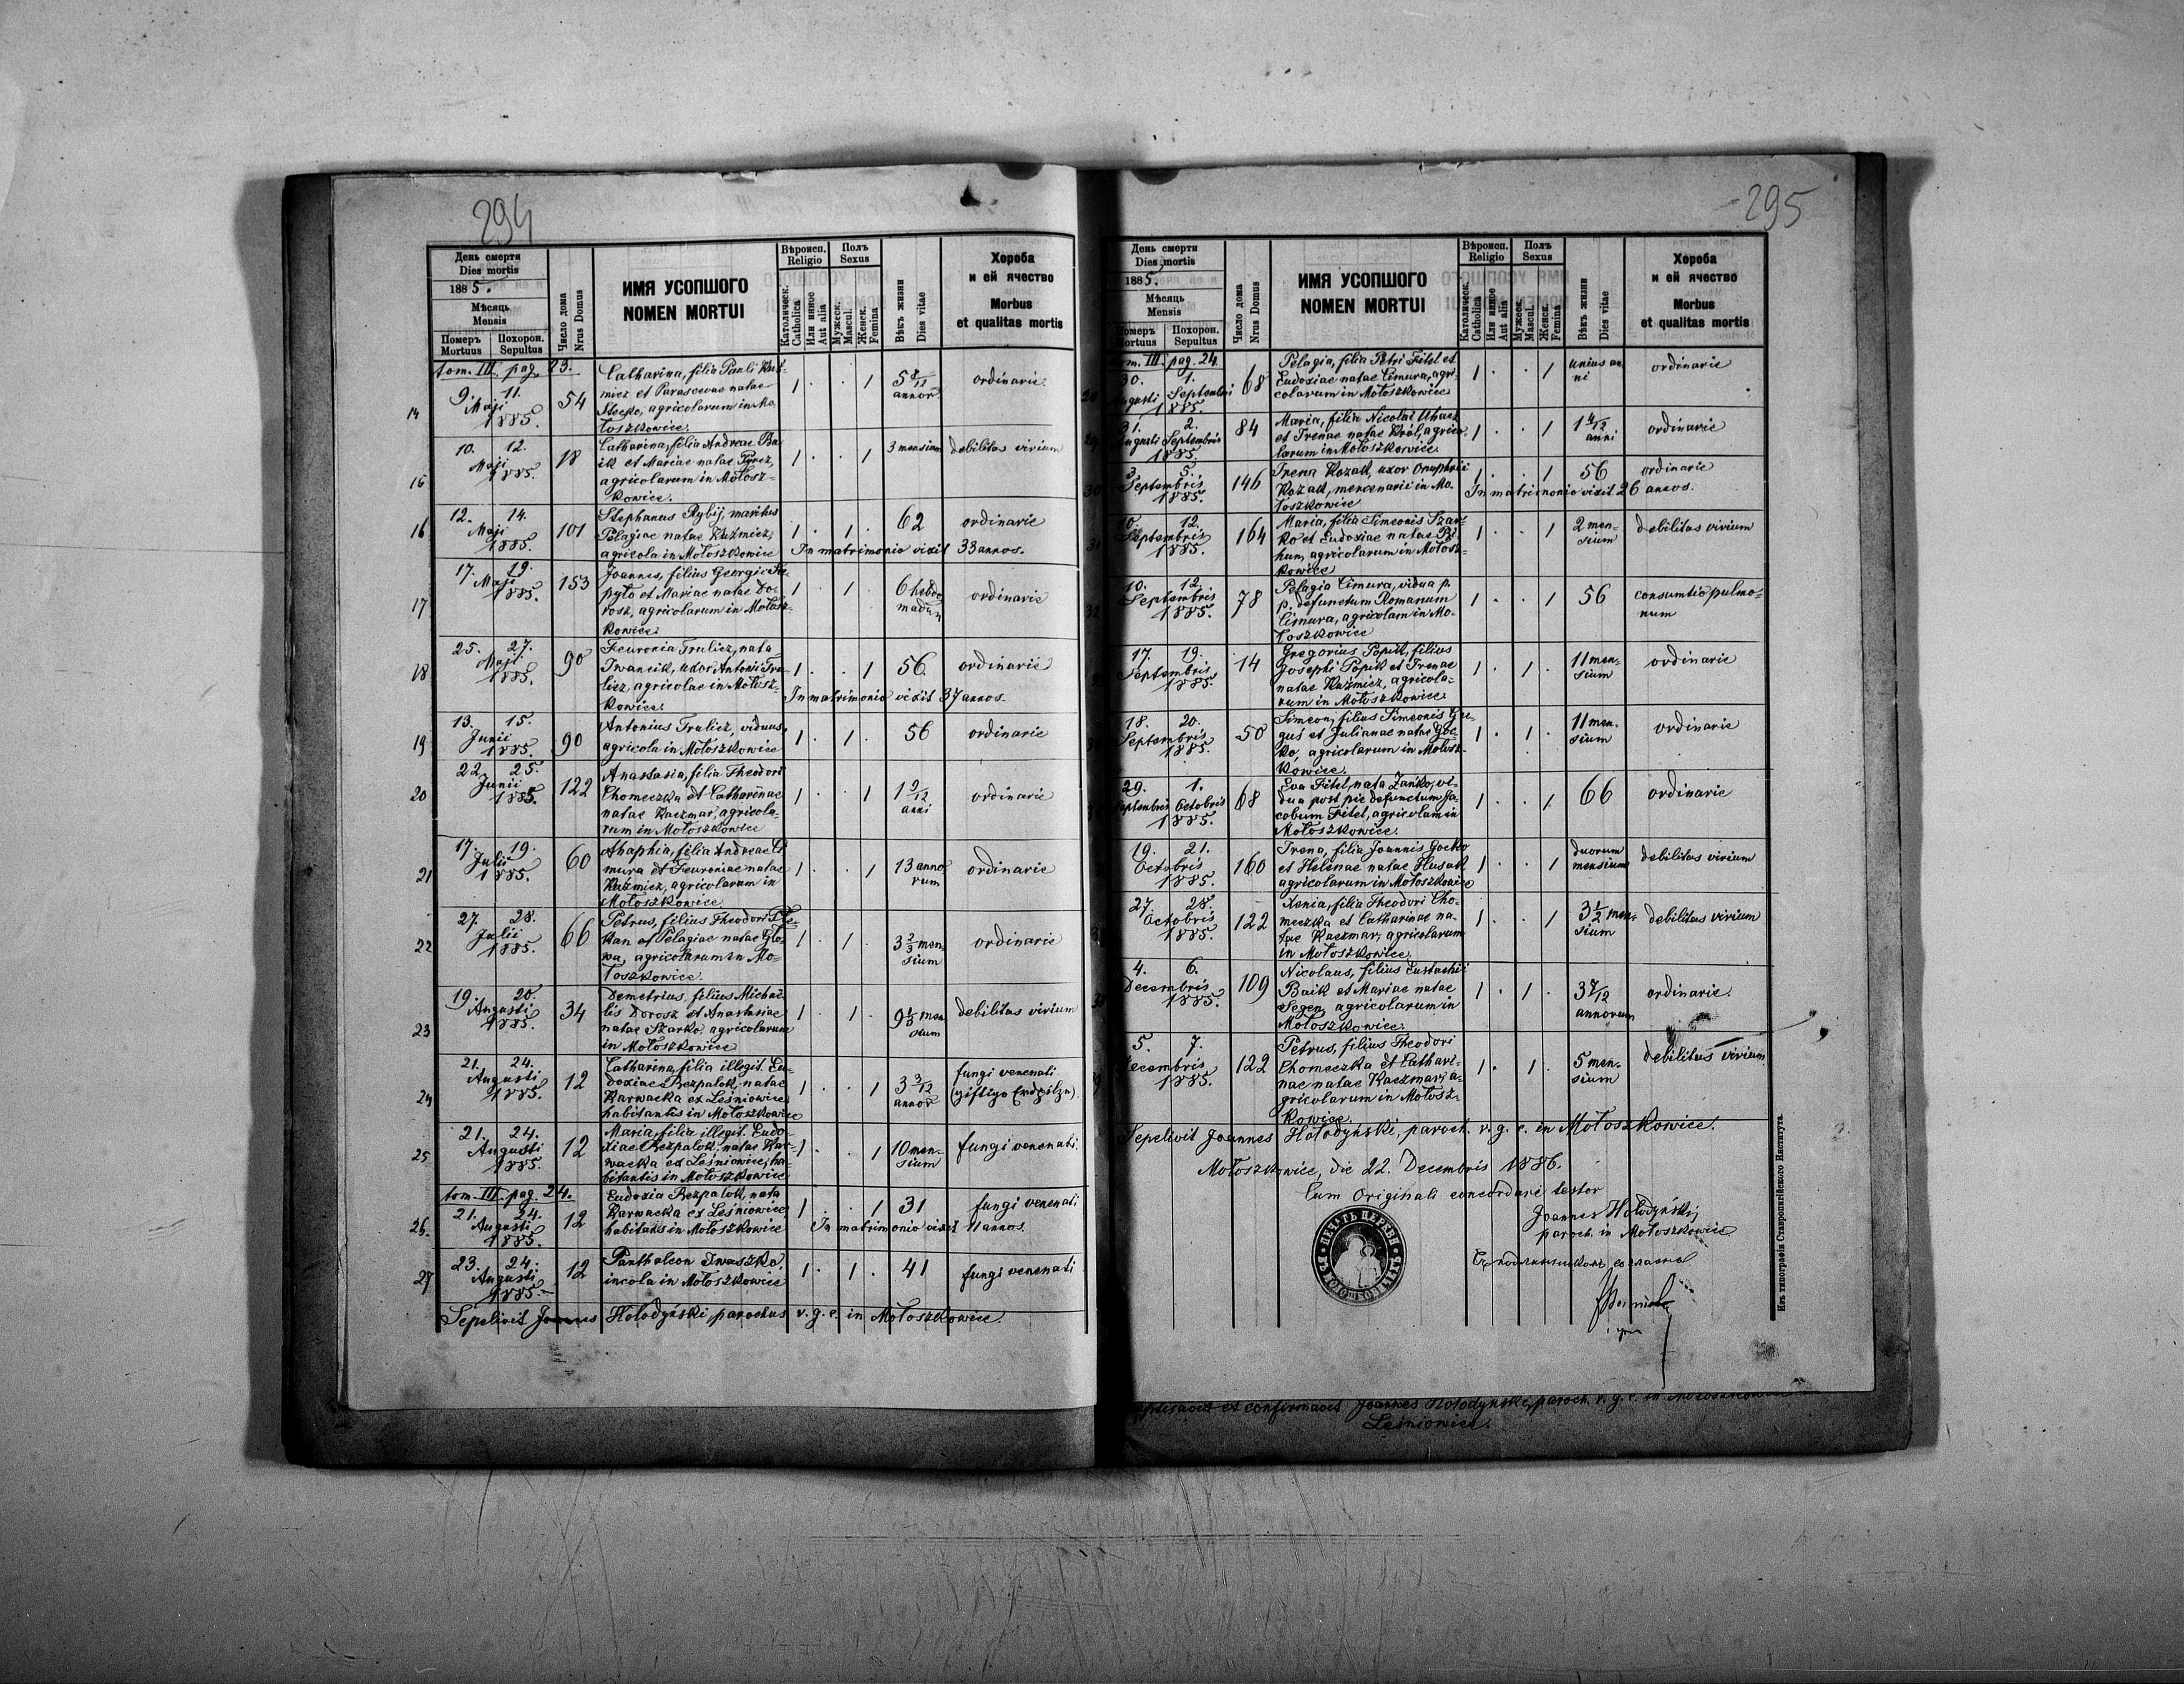 294
День смерти
Dies mortis
1885.
Мѣсяць
Mensis
Померъ
Mortuus
Похорон.
Sepultus
Число дома
Nrus Domus
ИМЯ УСОПШОГО
NOMEN MORTUI
Вѣроисп.
Religio
Католическ.
Catholica
Или инное
Aut alia
Полъ
Sexus
Мужеск.
Mascul.
Женск.
Femina
Вѣкъ жизни
Dies vitae
Хороба
и ей ячество
Morbus
et qualitas mortis
tom. III. pag. 23.
14 9. 11. Maji 1885. 54
Catharina, filia Pauli Kuź-
micz et Parascevae natae
Stecko, agricolarum in Mo-
łoszkowice.
1 . . 1 5 8/12 annor. ordinarie
15 10. 12. Maji 1885. 18
Catharina, filia Andreae Ba-
ik et Mariae natae Pyrcz,
agricolarum in Mołosz-
kowice.
1 . . 1 3 mensium debilitas virium
16 12. 14. Maji 1885. 101
Stephanus Rybij, maritus
Pelagiae natae Kuźmicz,
agricola in Mołoszkowice
1 . 1 . 62 ordinarie
In matrimonio vixit 33 annos.
17 17. 19. Maji 1885. 153
Joannes, filius Georgii
pyto et Mariae natae Do-
rosz, agricolarum in Mołosz-
kowice.
1 . 1 . 6 hebdo-
madum ordinarie
18 25. 27. Maji 1885. 90
Feuronia Trulicz, nata
Iwancik, uxor Antonii Tru-
licz, agricolae in Mołosz-
kowice.
1 . . 1 56. ordinarie
In matrimonio vixit 37 annos.
19 13. 15. Junii 1885. 90
Antonius Trulicz, viduus,
agricola in Mołoszkowice
1 . 1 . 56 ordinarie
20 22. 25. Junii 1885. 122
Anastasia, filia Theodori
Chomeczka et Catharinae
natae Kaczmar, agricola-
rum in Mołoszkowice
1 . . 1 1 9/12 anni ordinarie
21 17. 19. Julii 1885. 60
Ahaphia, filia Andreae Ci-
mura et Feuroniae natae
Kuźmicz, agricolarum in
Mołoszkowice.
1 . . 1 13 anno-
rum ordinarie
22 27. 28. Julii 1885. 66
Petrus, filius Theodori
kan et Pelagiae natae Gło-
wa, agricolarum in Mo-
łoszkowice.
1 . 1 . 3 2/3 men-
sium ordinarie
23 19. 20. Augusti 1885. 34
Demetrius, filius Michaë-
lis Dorosz et Anastasiae
natae Szarko, agricolarum
in Mołoszkowice
1 . 1 . 9 1/3 men-
sium debilitas virium
24 21. 24. Augusti 1885. 12
Catharina, filia illegit. Eu-
doxiae Bezpalok, natae
Karwacka ex Leśniowice,
habitantis in Mołoszkowice
1 . . 1 3 3/12 annor. fungi venenati
(giftige Erdpilze).
25 21. 24. Augusti 1885. 12
Maria, filia illegit. Eudo-
xiae Bezpalok, natae Kar-
wacka ex Leśniowice, ha-
bitantis in Mołoszkowice
1 . . 1 10 men-
sium fungi venenati.
tom. III. pag. 24.
26. 21. 24. Augusti 1885. 12
Eudoxia Bezpalok, nata
Karwacka ex Leśniowice
habitans in Mołoszkowice
1 . . 1 31 fungi venenati
In matrimonio vixit 11 annos.
27 23. 24. Augusti 1885. 12
Panthaleon Iwaszko,
incola in Mołoszkowice
1 . 1 . 41 fungi venenati
Sepelivit Joannes Hołodyński, parochus r. g. c. in Mołoszkowice.
295
День смерти
Dies mortis
1885.
Мѣсяць
Mensis
Померъ
Mortuus
Похорон.
Sepultus
Число дома
Nrus Domus
ИМЯ УСОПШОГО
NOMEN MORTUI
Вѣроисп.
Religio
Католическ.
Catholica
Или инное
Aut alia
Полъ
Sexus
Мужеск.
Mascul.
Женск.
Femina
Вѣкъ жизни
Dies vitae
Хороба
и ей ячество
Morbus
et qualitas mortis
tom. III. pag. 24.
30. Augusti 1. Septembri 1885. 68
Pelagia, filia Petri Fitel et
Eudoxiae natae Cimura, agri-
colarum in Mołoszkowice
1 . . 1 unius an-
ni ordinarie
31. Augusti 2. Septembris 1885. 84
Maria, filia Nicolai Uhacz
et Irenae natae Król, agrico-
larum in Mołoszkowice.
1 . . 1 1 4/12 anni ordinarie
30 3. 5. Septembris 1885. 146
Irena Kozak, uxor Onuphrii
Kozak, mercenarii in Mo-
łoszkowice
1 . . 1 56 ordinarie
In matrimonio vixit 26 annos.
31 10. 12. Septembris 1885. 164
Maria, filia Simeonis Szar-
ko et Eudoxiae natae
hun, agricolarum in Mołosz-
kowice
1 . . 1 2 men-
sium debilitas virium
32 10. 12. Septembris 1885. 78
Pelagia Cimura, vidua p.
p. defunctum Romanum
Cimura, agricolam in Mo-
łoszkowice
1 . . 1 56 consumtio pulmo-
num
17. 19. Septembris 1885. 14
Gregorius Popik, filius
Josephi Popik et Irenae
natae Kuźmicz, agricola-
rum in Mołoszkowice.
1 . 1 . 11 men-
sium ordinarie
18. 20. Septembris 1885. 50
Simeon, filius Simeonis Gre-
gus et Julianae natae Goc-
ko, agricolarum in Mołosz-
kowice.
1 . 1 . 11 men-
sium ordinarie
29. Septembris 1. Octobris 1885. 68
Eva Fitel, nata Zańko, vi-
dua post pie defunctum Ja-
cobum Fitel, agricolam in
Mołoszkowice.
1 . . 1 66 ordinarie
19. 21. Octobris 1885. 160
Irena, filia Joannis Gocko
et Helenae natae Husak
agricolarum in Mołoszkowice
1 . . 1 duorum
mensium debilitas virium
27. 28. Octobris 1885. 122
Xenia, filia Theodori Cho-
meczka et Catharinae na-
tae Kaczmar, agricolarum
in Mołoszkowice.
1 . . 1 3 1/2 men-
sium debilitas virium
4. 6. Decembris 1885. 109
Nicolaus, filius Eustachii
Baik et Mariae natae
Segen, agricolarum in
Mołoszkowice.
1 . 1 . 3 7/12
annorum ordinarie.
5. 7. Decembris 1885. 122
Petrus, filius Theodori
Chomeczka et Cathari-
nae natae Kaczmar, a-
gricolarum in Mołosz-
kowice.
1 . 1 . 5 men-
sium debilitas virium
Sepelivit Joannes Hołodyński, paroch. r. g. c. in Mołoszkowice.
Mołoszkowice, die 22. Decembris 1886.
Cum Originali concordari testor
Joannes Hołodyński,
paroch. in Mołoszkowice
Съ подлинникомъ согласно
ПЕЧАТЬ ЦЕРКВИ
Изъ типографіи Ставропигійского Института.
et confirmavit Joannes Hołodyński, paroch. r. g. c. in Mołoszkowice
Leśniowice.